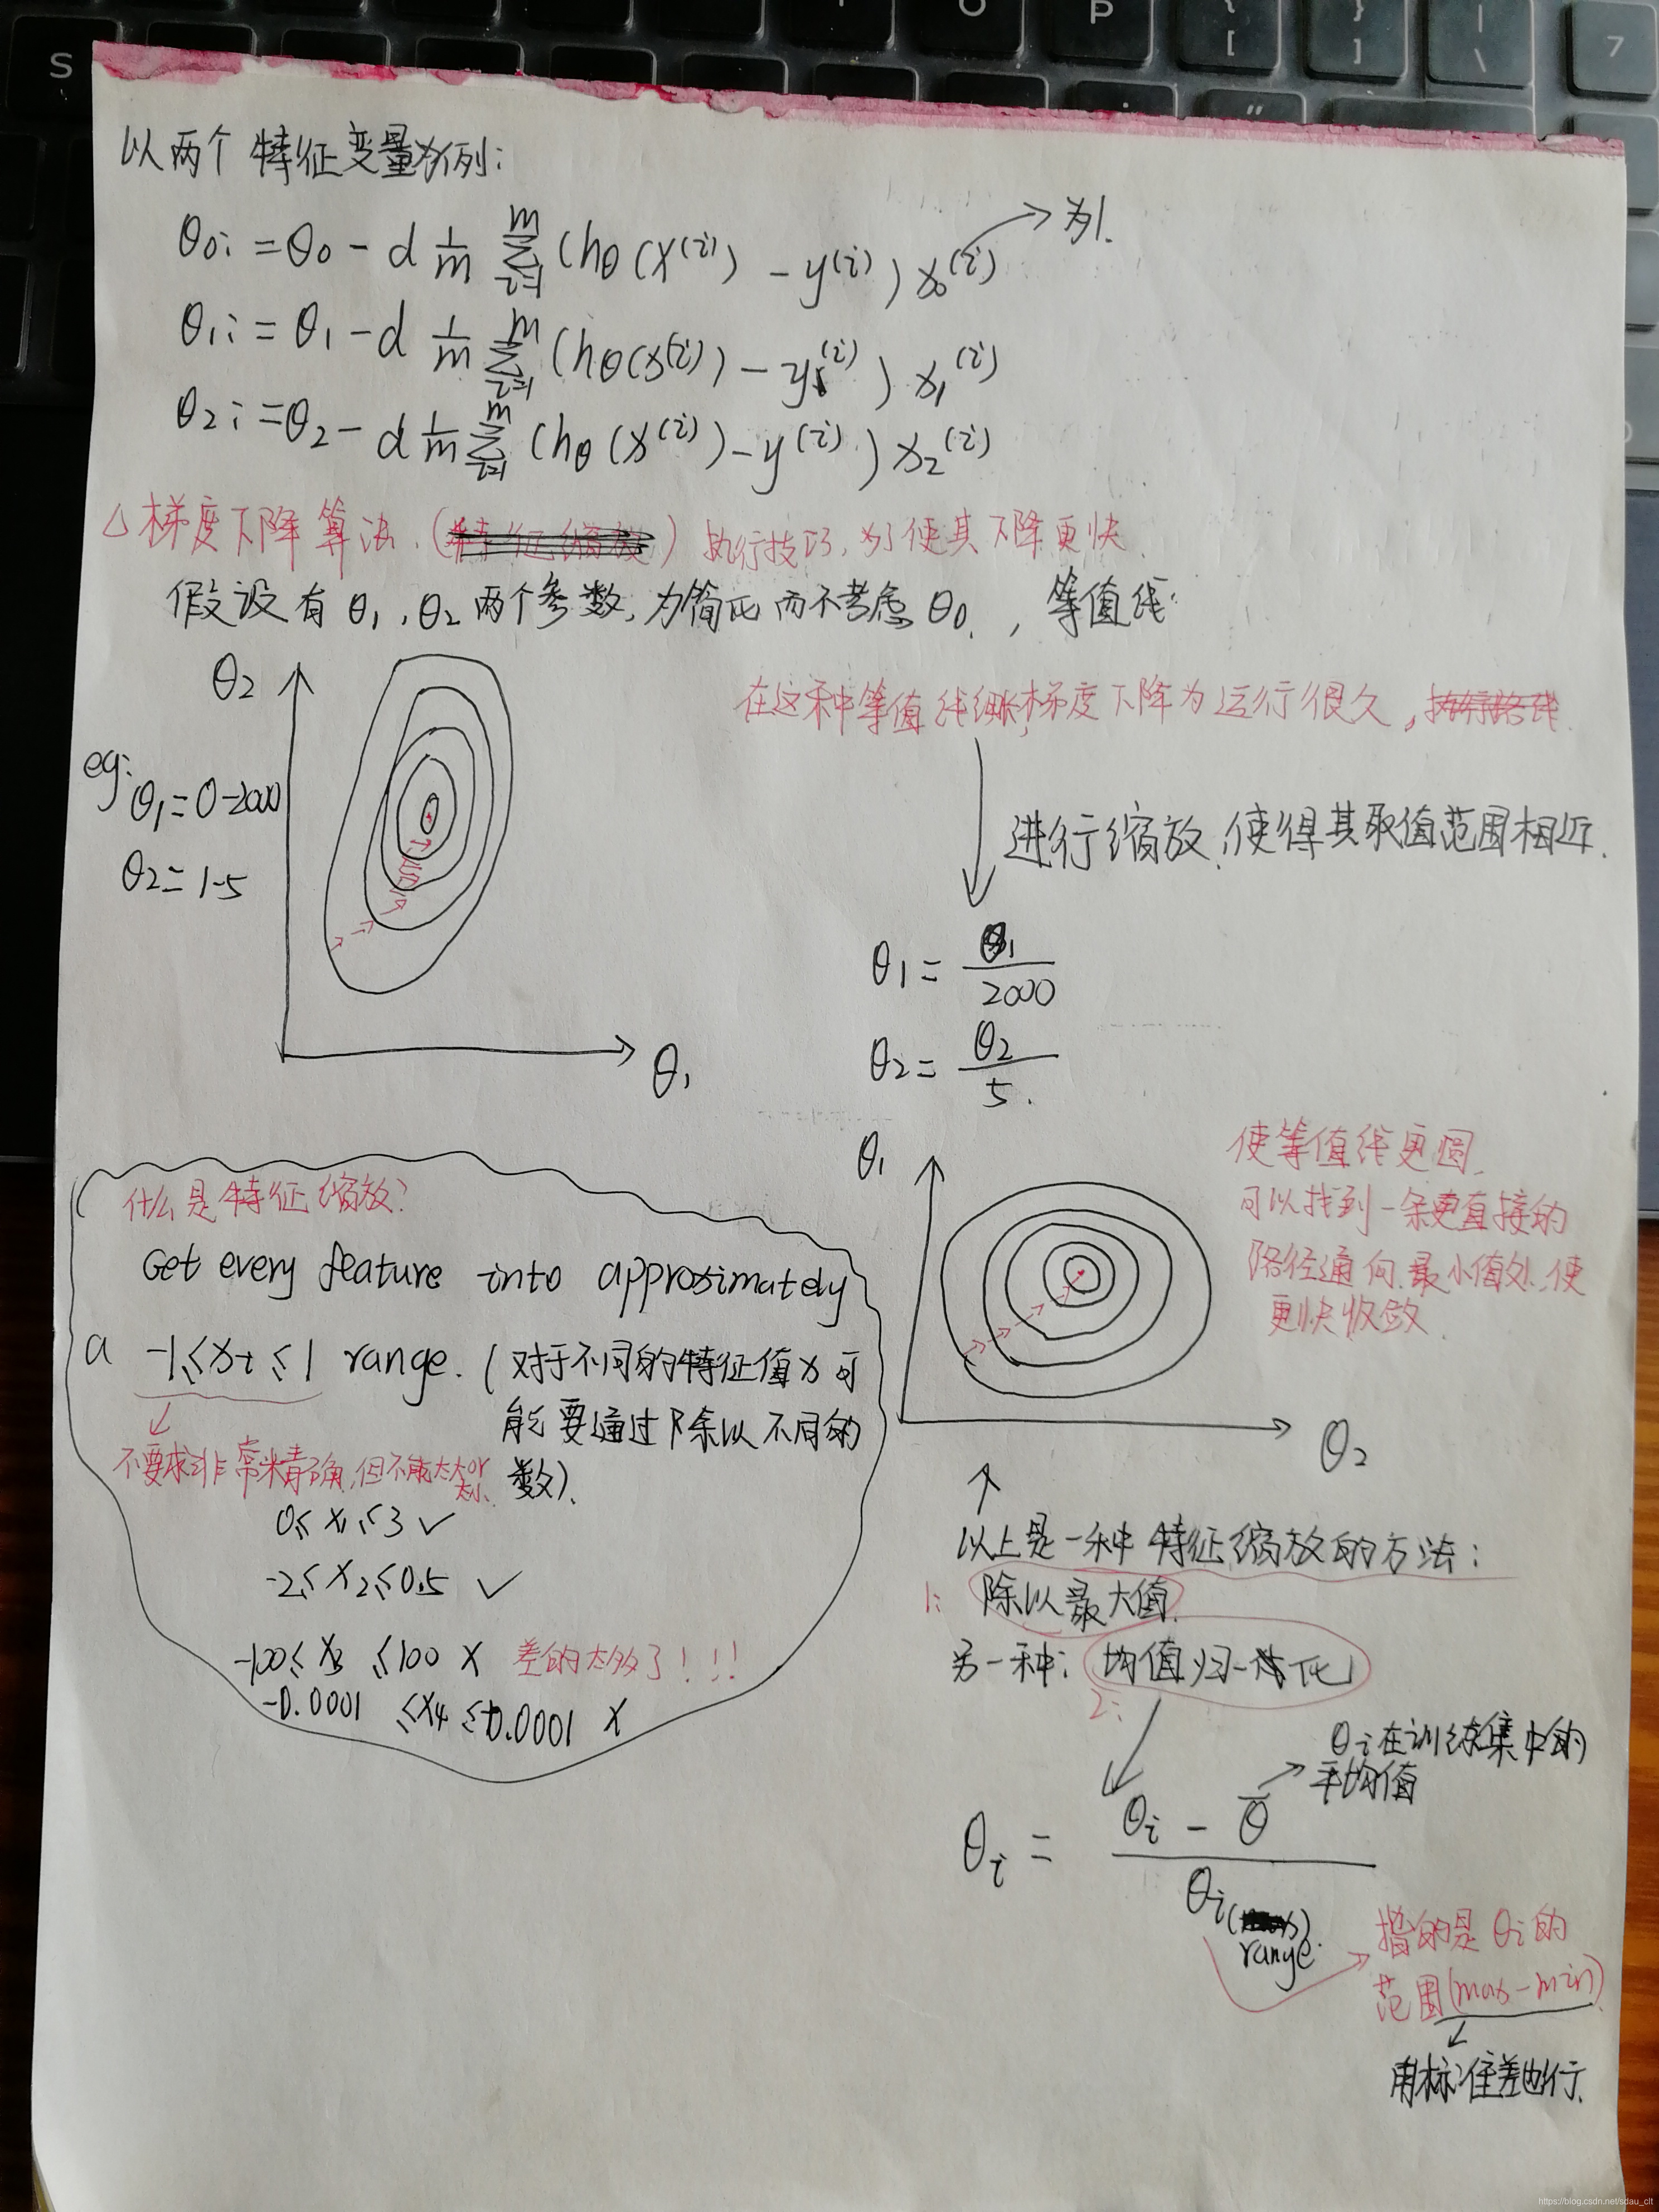 以两个特征变量为例:
θ0 := θ0 - α 1/m m∑i=1 (hθ(x^(i)) - y^(i)) x0^(i) → 为1.
θ1 := θ1 - α 1/m m∑i=1 (hθ(x^(i)) - y^(i)) x1^(i)
θ2 := θ2 - α 1/m m∑i=1 (hθ(x^(i)) - y^(i)) x2^(i)
△梯度下降算法. ( ) 执行技巧, 为了使其下降更快.
假设有 θ1, θ2 两个参数, 为简化而不考虑 θ0. , 等值线:
θ2
eg:
θ1=0-2000
θ2=1-5
θ1
在这种等值线 梯度下降为运行很久,
进行缩放, 使得其取值范围相近.
θ1 = θ1/2000
θ2 = θ2/5.
θ1
θ2
使等值线更圆,
可以找到一条更直接的
路径通向最小值处, 使
更快收敛.
什么是特征缩放?
Get every feature into approximately
a -1≤xi≤1 range. (对于不同的特征值x可
能要通过除以不同的
数).
不要求非常精确, 但不能太大or
太小.
0≤x1≤3 ✓
-2≤x2≤0.5 ✓
-100≤x3≤100 × 差的太多了!!!
-0.0001≤x4≤+0.0001 ×
↑
以上是一种特征缩放的方法:
1: 除以最大值.
另一种: 均值归一化
2:
θi在训练集中的
平均值
θi = (θi - θ̄) / θi
range.
指的是θi的
范围(max-min)
用标准差也行.
S
O
P
{
[
}
]
|
\
7
"
https://blog.csdn.net/sdau_clt